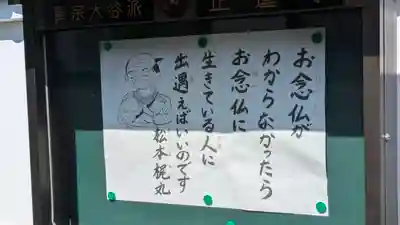 真宗大谷派
正蓮寺
お念仏が
わからなかったら
お念仏に
生きている人に
出遇えばいいのです
松本梶丸